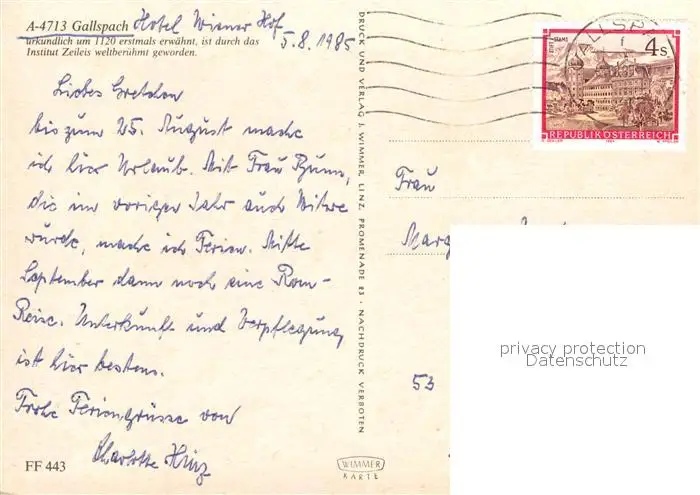 A-4713 Gallspach Hotel Wiener Hof
urkundlich um 1120 erstmals erwähnt, ist durch das
Institut Zeileis weltberühmt geworden.
5.8.1985
Liebes Gretchen
bis zum 25. August mache
ich hier Urlaub. Mit Frau
die im vorigen Jahr auch Witwe
wurde, mache ich Ferien. Mitte
September dann noch eine Rom-
Reise. Unterkunft und Verpflegung
ist hier bestens.
Frohe Feriengrüsse von
Charlotte Hinz
FF 443
DRUCK UND VERLAG J. WIMMER, LINZ, PROMENADE 23 · NACHDRUCK VERBOTEN
WIMMER
KARTE
GALLSPA
STIFT STAMS
4s
REPUBLIK ÖSTERREICH
Frau
Marg
53
privacy protection
Datenschutz